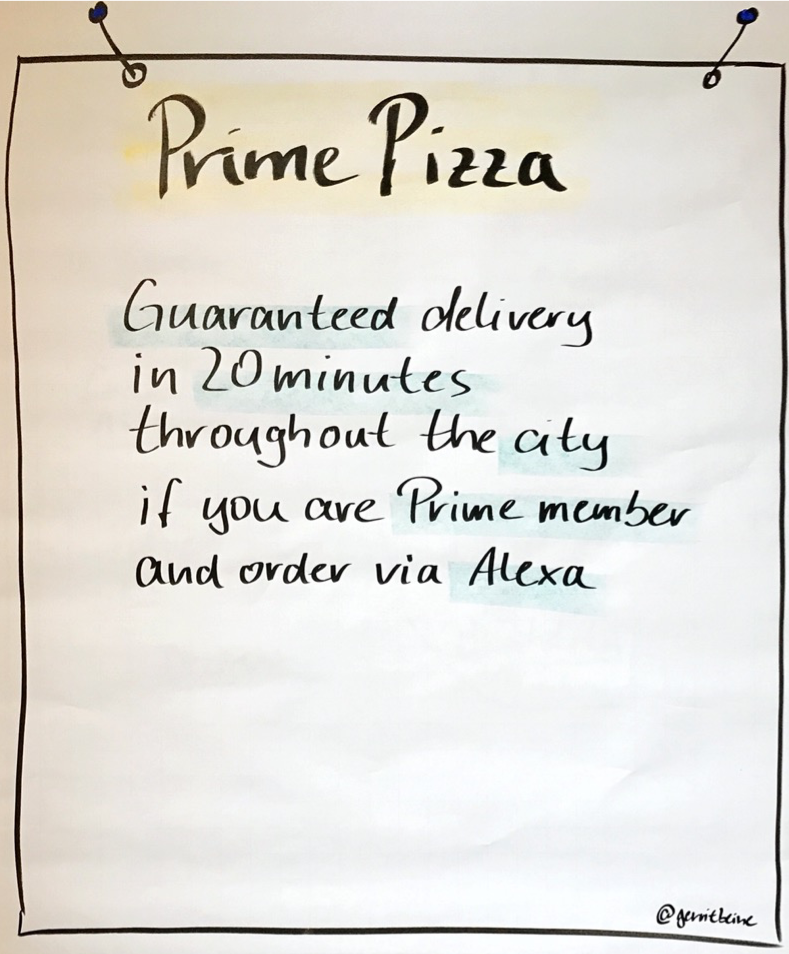 Prime Pizza
Guaranteed delivery
in 20 minutes
throughout the city
if you are Prime member
and order via Alexa
@gerritbeine